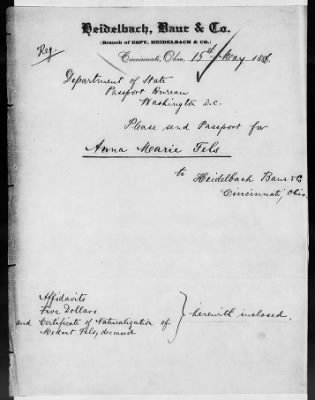 Heidelbach, Baur & Co.
(Branch of ESPY, HEIDELBACH & CO.)
Reg.
Cincinnati, Ohio, 15th May 188
Department of State
Passport Bureau
Washington D.C.
Please send Passport for
Anna Marie Fels
to Heidelbach Baur & Co
Cincinnati, Ohio
Affidavits
Five Dollars
and Certificate of Naturalization of
Fels, deceased
herewith inclosed.